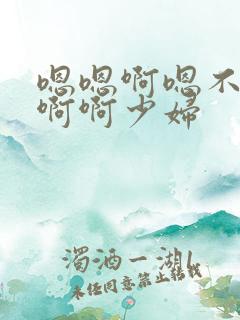 嗯嗯啊嗯不
啊啊少妇
浊酒一湖
未经同意禁止转载